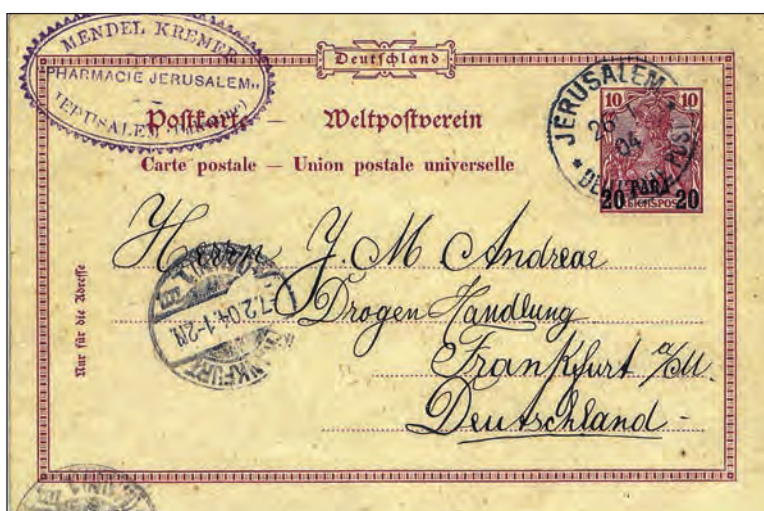 MENDEL KREMER
PHARMACIE JERUSALEM
JERUSALEM
Deutschland
Postkarte — Weltpostverein
Carte postale — Union postale universelle
JERUSALEM
26
04
DEUTSCHE POST
10 10
20 PARA 20
REICHSPOST
Nur für die Adresse
Herrn J. M Andreae
Drogen Handlung
Frankfurt a/M.
Deutschland
FRANKFURT
7.2.04.1-2N